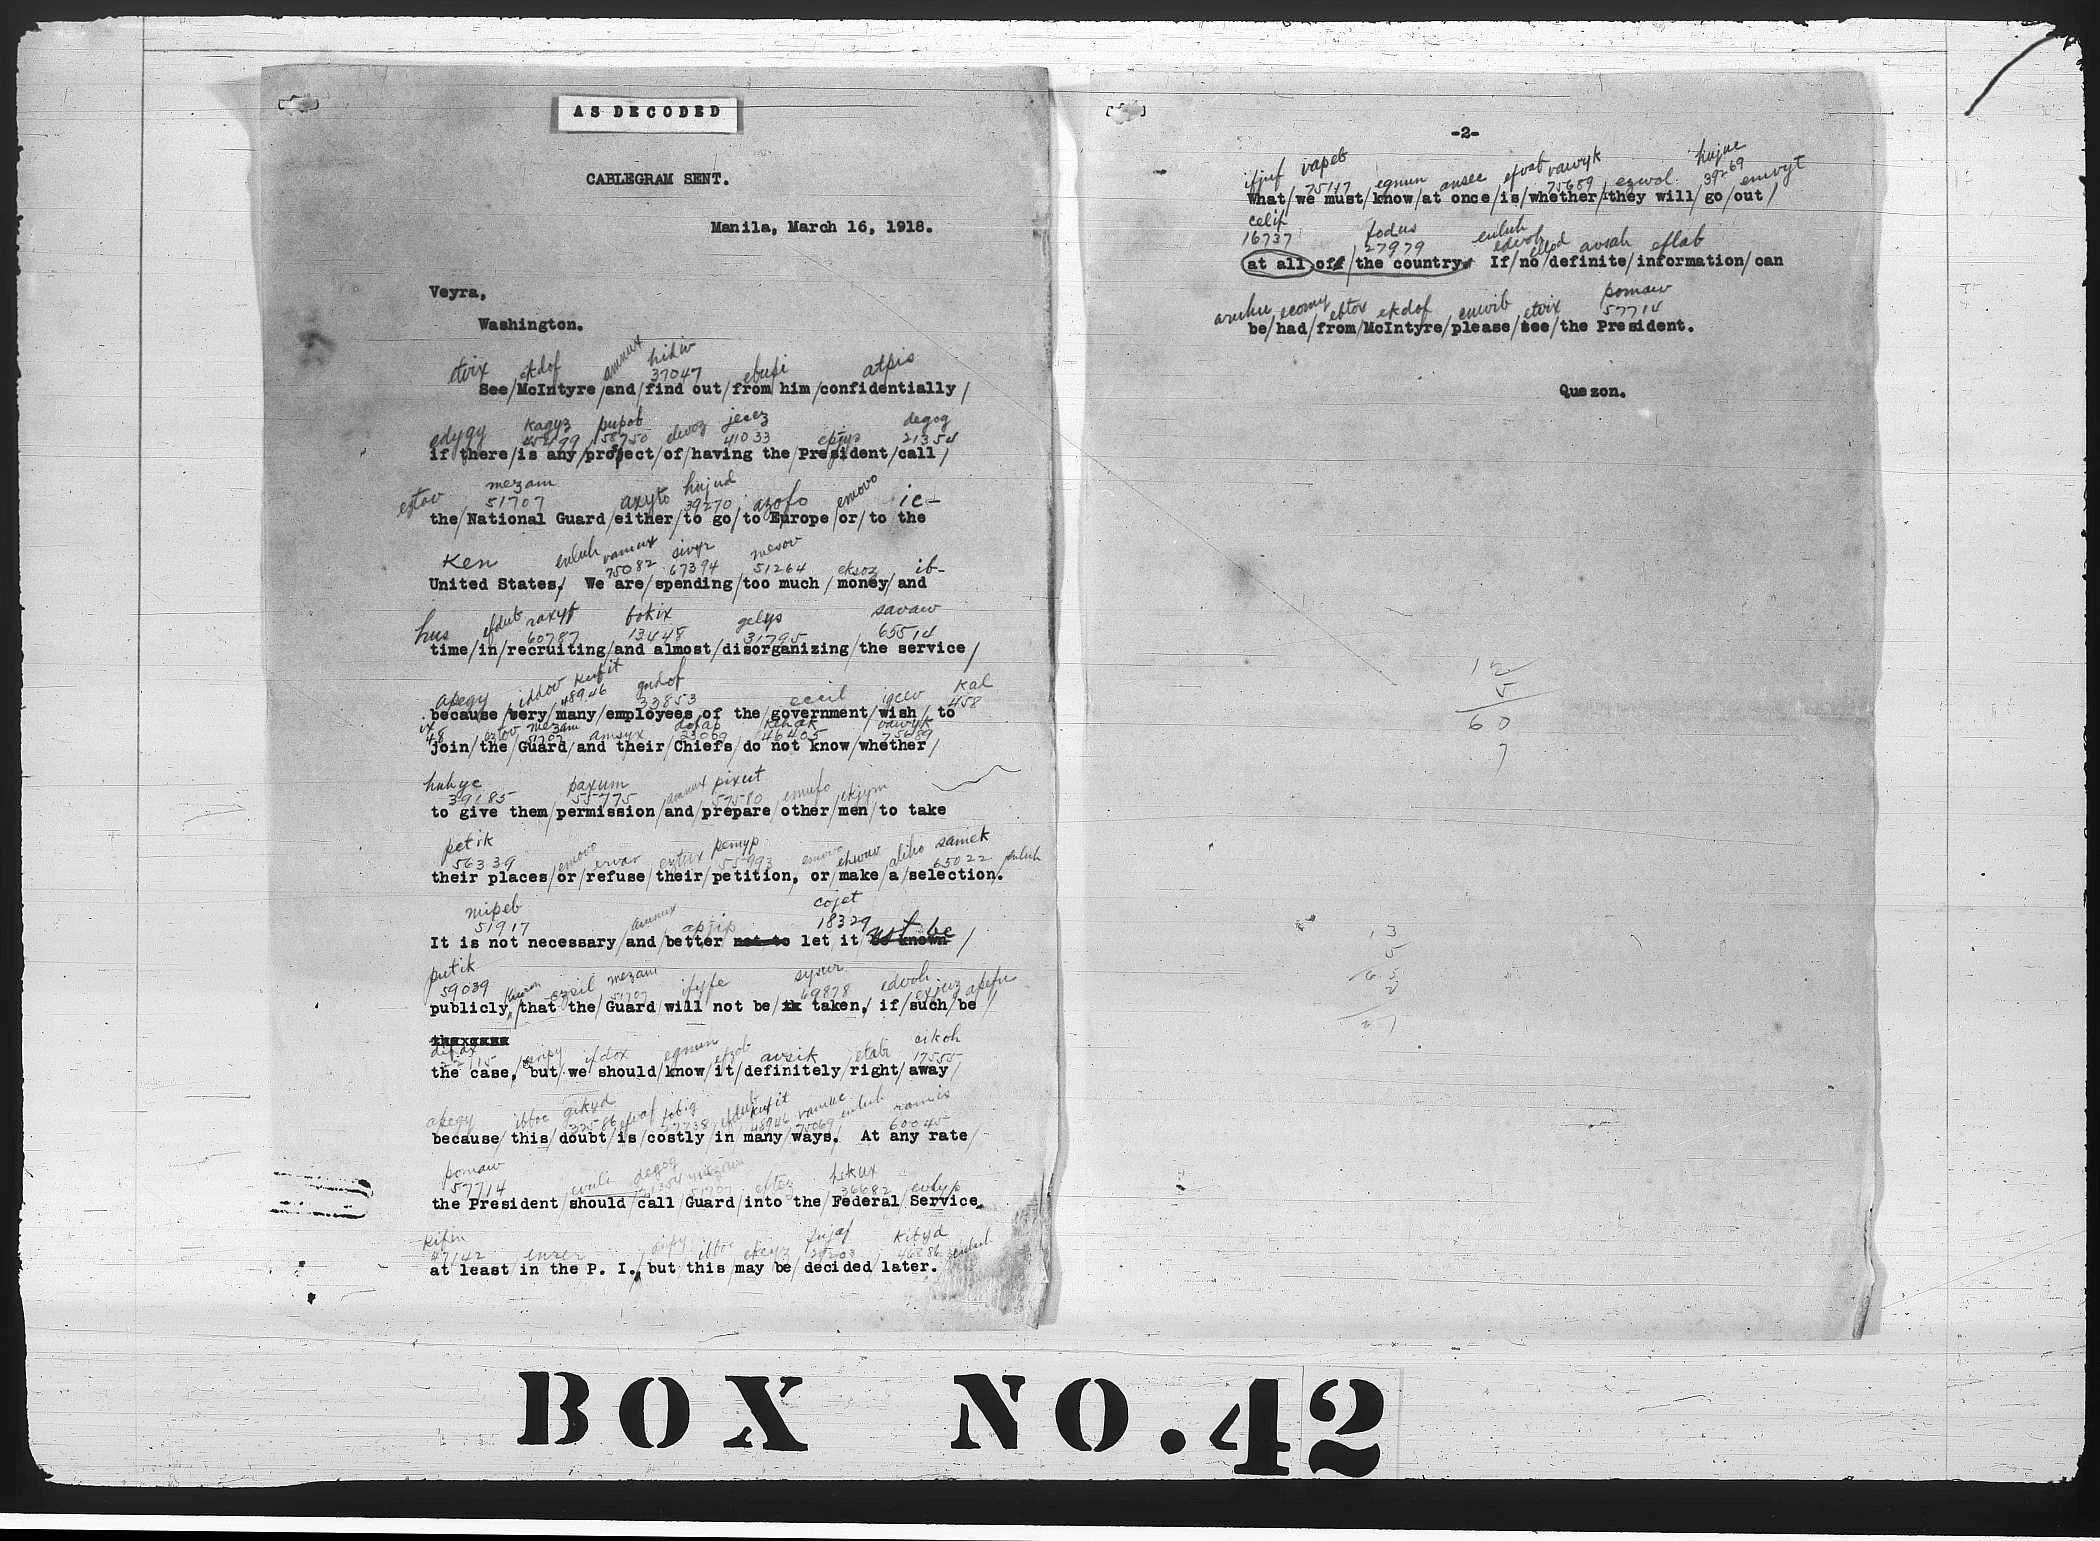 AS DECODED
CABLEGRAM SENT.
Manila, March 16, 1918.
Veyra,
Washington.
etvix ekdof ammux hidiv ebupi atpis
37047
See/McIntyre/and/find out/from him/confidentially/
edygy kagyz pupob jecez epjyp degog
58750 41033 21354
if there/is any/prospect/of/having the/President/call/
mezam axyto hujud azofo emovo ic-
51707 39270
the/National Guard/either/to go/to Europe/or/to the
ken euluh vamux sivyr mesov eksoz ib-
75082 67394 51264
United States./ We are/spending/too much/money/and
hus efdub raxyf bokix gelys savaw
60787 13448 31795 65514
time/in/recruiting/and almost/disorganizing/the service/
apegy iddov kufit gudof eccil igeev kal
48946 33853 458
because/very/many/employees of the/government/wish/to
ix eztov mezam amsyx dofap kehak vawyk
48 51707 23069 46405 75689
join/the/Guard/and their/Chiefs/do not know/whether/
huhyc paxum ammux pixut emufo ekjym
39185 55775 57580
to give them/permission/and/prepare/other/men/to take
petik emovo ervar pemyp emovo ehwav aliho samek euluh
56339 55993 65022
their places/or/refuse/their/petition, or/make/a/selection.
mipeb ammux apjip cojet
51917 18329
It is not necessary/and/better not to let it ust be be known/
putik ezsil mezam ifyfe sysur edvoh exjuz apefu
59039 51707 69878
publicly,/that the/Guard/will not be/ik taken,/if/such/be/
the case
ifdox egmun efzob avsik etabi cikoh
17555
the case,/but/we should/know/it/definitely/right/away/
apegy ibboc gikyd efvaf efdub kufit vamuc euluh ramis
32586 27738 48946 75069 60045
because/this/doubt/is/costly/in/many/ways. At any rate/
pomaw degog mezam hekux evlyp
57714 21354 51707 36682
the President/should/call/Guard/into the/Federal/Service.
kifin ibboc ekeyz fujaf kibyd euluh
47142 46886
at least/in the P. I.,/but/this/may be/decided/later.
-2-
ifjuf vapeb egmun ansec efvab vawyk ezwol hujuc emvyt
75117 75689 39269
What/we must/know/at once/is/whether/they will/go/out/
celif fodus euluh edvoh avsah eflab
16737 27979
at all of/the country. If/no/definite/information/can
ecomy ebtox ekdof euwib etvix pomaw
57714
be/had/from/McIntyre/please/see/the President.
Quezon.
12
5
60
7
13
5
65
2
BOX NO. 42